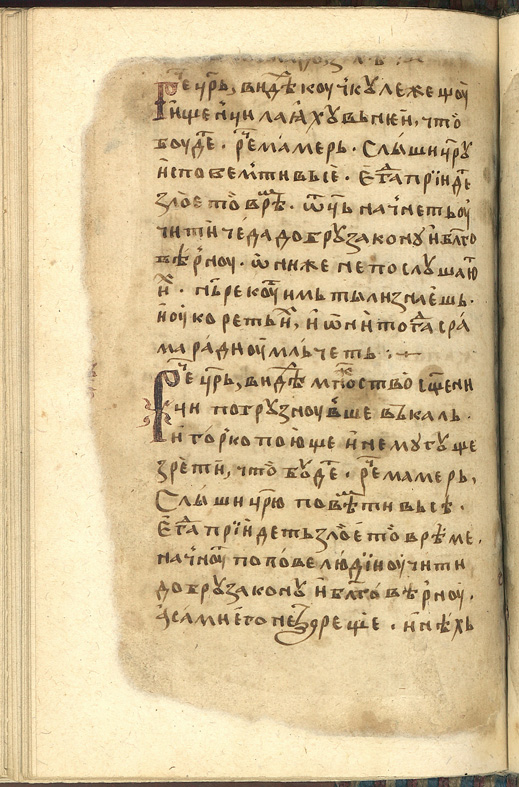 Рече ц҃рь, видѣⷯ коучкꙋ лежещоу
и щенци лаꙗхꙋ вь нѥи, что̀
боуде . рече мамерь . Слыши ц҃рꙋ
и повѣмь ти вьсѐ . Егⷣа прїиде
злое то̀ врѣме . ѿць начнеть оу
чити чеда добрꙋ законꙋ и бл҃го
вѣрноу . ѡни же не послꙋшаю
и рекоуⷮ имь ты лиѕмѣешь .
и оукореть и, и ѡни тогⷣа сра
ма ради оумльчеть :
Рече ц҃рь, видѣⷯ множство сще
погрꙋзноувше вь каль .
и горко поюще и не могꙋще
зрети, что̀ бꙋде . рече мамерь,
Слыши ц҃рю повѣмь ти вьсѐ .
Егⷣа прїидеть злое то̀ врѣме .
начноуⷮ попове люди оучити
добрꙋ законꙋ и бл҃говѣрноу .
а сами его не зреще . и нѣхь